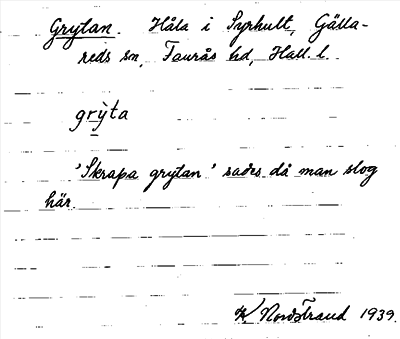 Grytan. Håla i Syrhult, Gälla-
reds sn, Faurås hd, Hall. l.
grỳta
'Skrapa grytan' sades då man slog
här.
Nordstrand 1939.